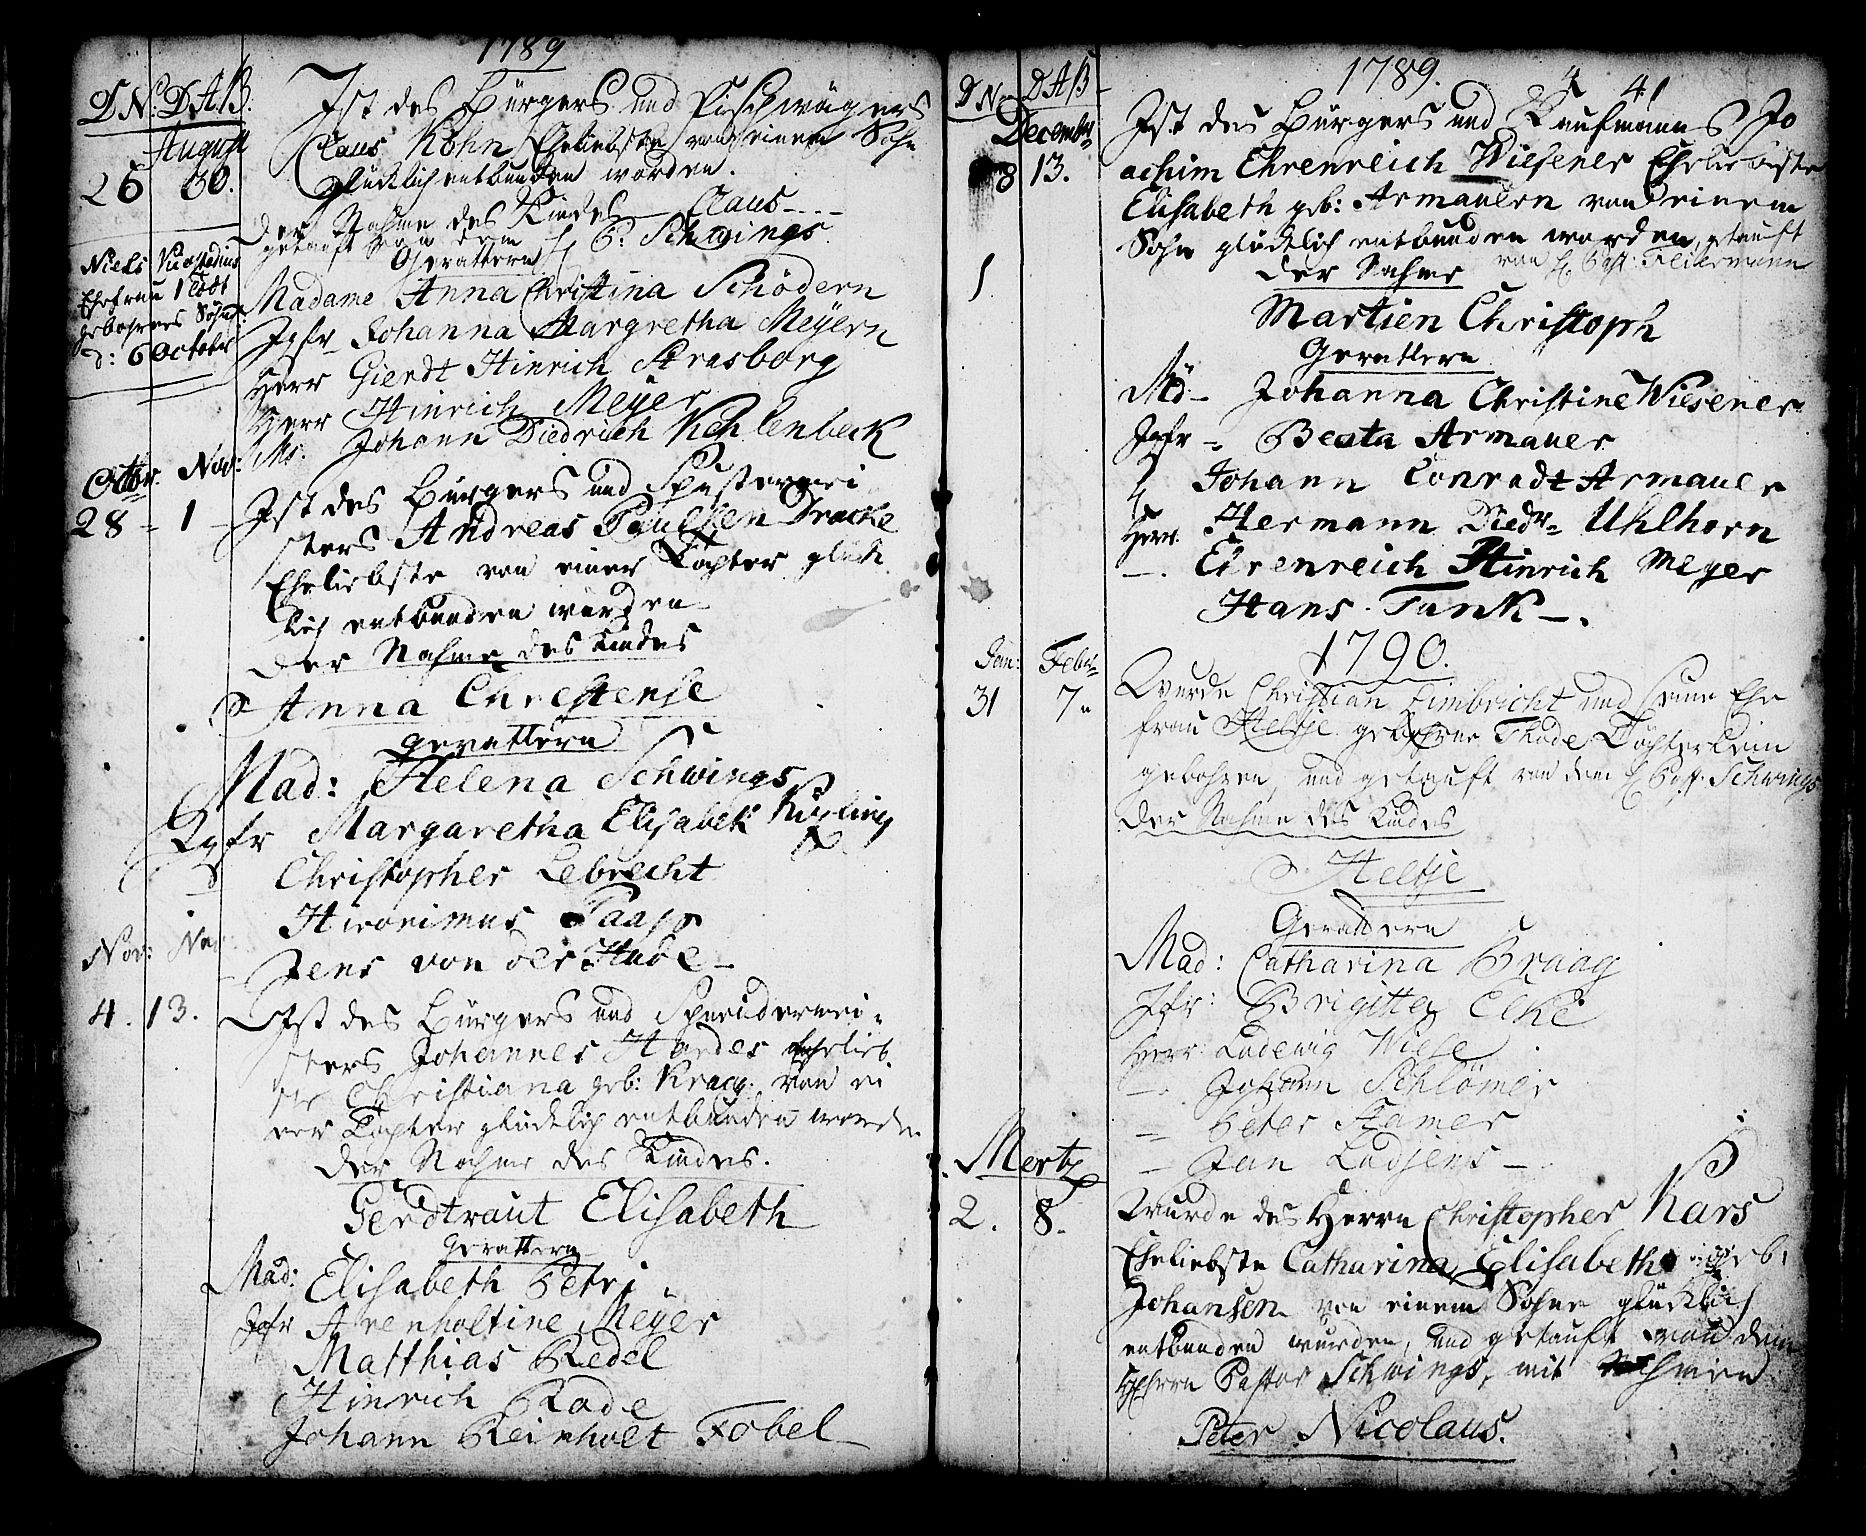 1789
D N. D A B.
August
26 30.
Ist des Bürgers und
Claus Köhn Eheliebste von einem Sohn
glücklich entbunden worden.
Der Nahme des Kindes Claus
getauft von dem H P: Schwings
Gevattern
Madame Anna Christina Schödern
Jgfr Johanna Margretha Meÿern
Herr Gierdt Hinrich Strasborg
Herr Hinrich Meÿer
Ms. Johann Diedrich Kehlenbeck
Niels
Ehefrau 1 todt
gebohrnes Söhn
d: 6 October
Octbr. Nov:
28 - 1 -
Ist des Bürgers und Schustermei
sters Andreas Paulsen Dracke
Eheliebste von einer Tochter glück
lich entbunden worden
Der Nahme des Kindes
Anna Christensje
Gevattern
Mad: Helena Schwings
Jgfr Margaretha Elisabeth Kipling
Christopher Lebrecht
Hironimus Paasp
Jens von der Hude
Nov: Nov:
4. 13.
Ist des Bürgers und Schneidermei-
sters Johannes Hardes Ehelieb
ste Christiana geb: Kraag von ei
ner Tochter glücklich entbunden worden
Der Nahme des Kindes.
Gerdtraut Elisabeth
Gevattern
Mad: Elisabeth Petri
Jgfr Arenholtine Meÿer
Matthias Redel
Hinrich Rode
Johann Reinholt Fobel
1789.
41
D N D A B
December
8 13.
Ist des Bürgers und Kaufmanns Jo
achim Ehrenreich Wiesener Eheliebste
Elisabeth geb: Armauern von einem
Sohn glücklich entbunden worden, getauft
von H Past:
Der Nahme
Martien Christoph
Gevattern
Md- Johanna Christine Wiesener
Jgfr - Beata Armauer
Johann Conradt Armauer
Herr. Hermann Diedr- Uhlhorn
-. Ehrenreich Hinrich Meyer
Hans Tank -.
1790.
Jan: Febr
31 7
Wurde Christian Limbricht und seine Ehe
frau Heltje gebohrne Thode Töchterlein
gebohren, und getauft von dem H Past: Schwings
Der Nahme des Kindes
Heltje
Gevattern
Mad: Catharina Kraag
Jfr: Brigitta Elke
Herr Ludewig Wiese
- Johann Schlömer
- Peter Hamer
- Jan Lödjens -
Mertz
2. 8.
Wurde des Herrn Christopher Kars
Eheliebste Catharina Elisabeth geb:
Johansen von einem Sohne glücklich
entbunden wurden, und getauft von dem
Herrn Pastor Schwings, mit Nahmen
Peter Nicolaus.